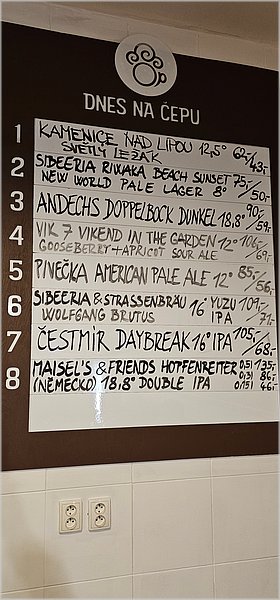 DNES NA ČEPU
1 KAMENICE NAD LIPOU 12,5° 62,-/43,-
SVĚTLÝ LEŽÁK
2 SIBEERIA RIWAKA BEACH SUNSET 75,-/50,-
NEW WORLD PALE LAGER 8°
3 ANDECHS DOPPELBOCK DUNKEL 18,8° 90,-/59,-
4 VIK 7 VIKEND IN THE GARDEN 12° 106,-/69,-
GOOSEBERRY + APRICOT SOUR ALE
5 PINEČKA AMERICAN PALE ALE 12° 85,-/56,-
6 SIBEERIA & STRASSENBRÄU 16° YUZU 109,-/71,-
WOLFGANG BRUTUS IPA
7 ČESTMÍR DAYBREAK 16° IPA 105,-/68,-
8 MAISEL'S & FRIENDS HOPFENREITER 0,5l 135,-
(NĚMECKO) 18,8° DOUBLE IPA 0,3l 86,-
0,15l 46,-